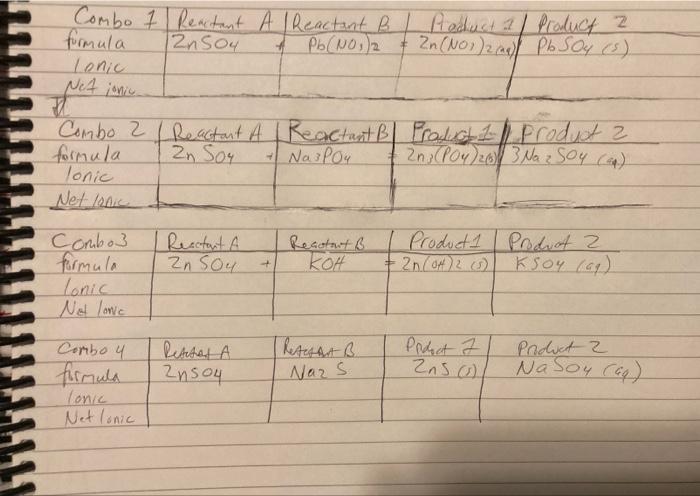 Combo 1 | Reactant A | Reactant B | Product 1 | Product 2
formula ZnSO4 + Pb(NO3)2 = Zn(NO3)2(aq) PbSO4 (s)
Ionic
Net ionic
Combo 2 | Reactant A | Reactant B | Product 1 | Product 2
formula Zn SO4 + Na3PO4 = Zn3(PO4)2(s) 3Na2SO4 (aq)
Ionic
Net Ionic
Combo3 | Reactant A | Reactant B | Product1 | Product 2
formula Zn SO4 + KOH = Zn(OH)2 (s) KSO4 (aq)
Ionic
Net Ionic
Combo 4 | Reactant A | Reactant B | Product 1 | Product 2
formula ZnSO4 Na2 S ZnS (s) NaSO4 (aq)
Ionic
Net Ionic